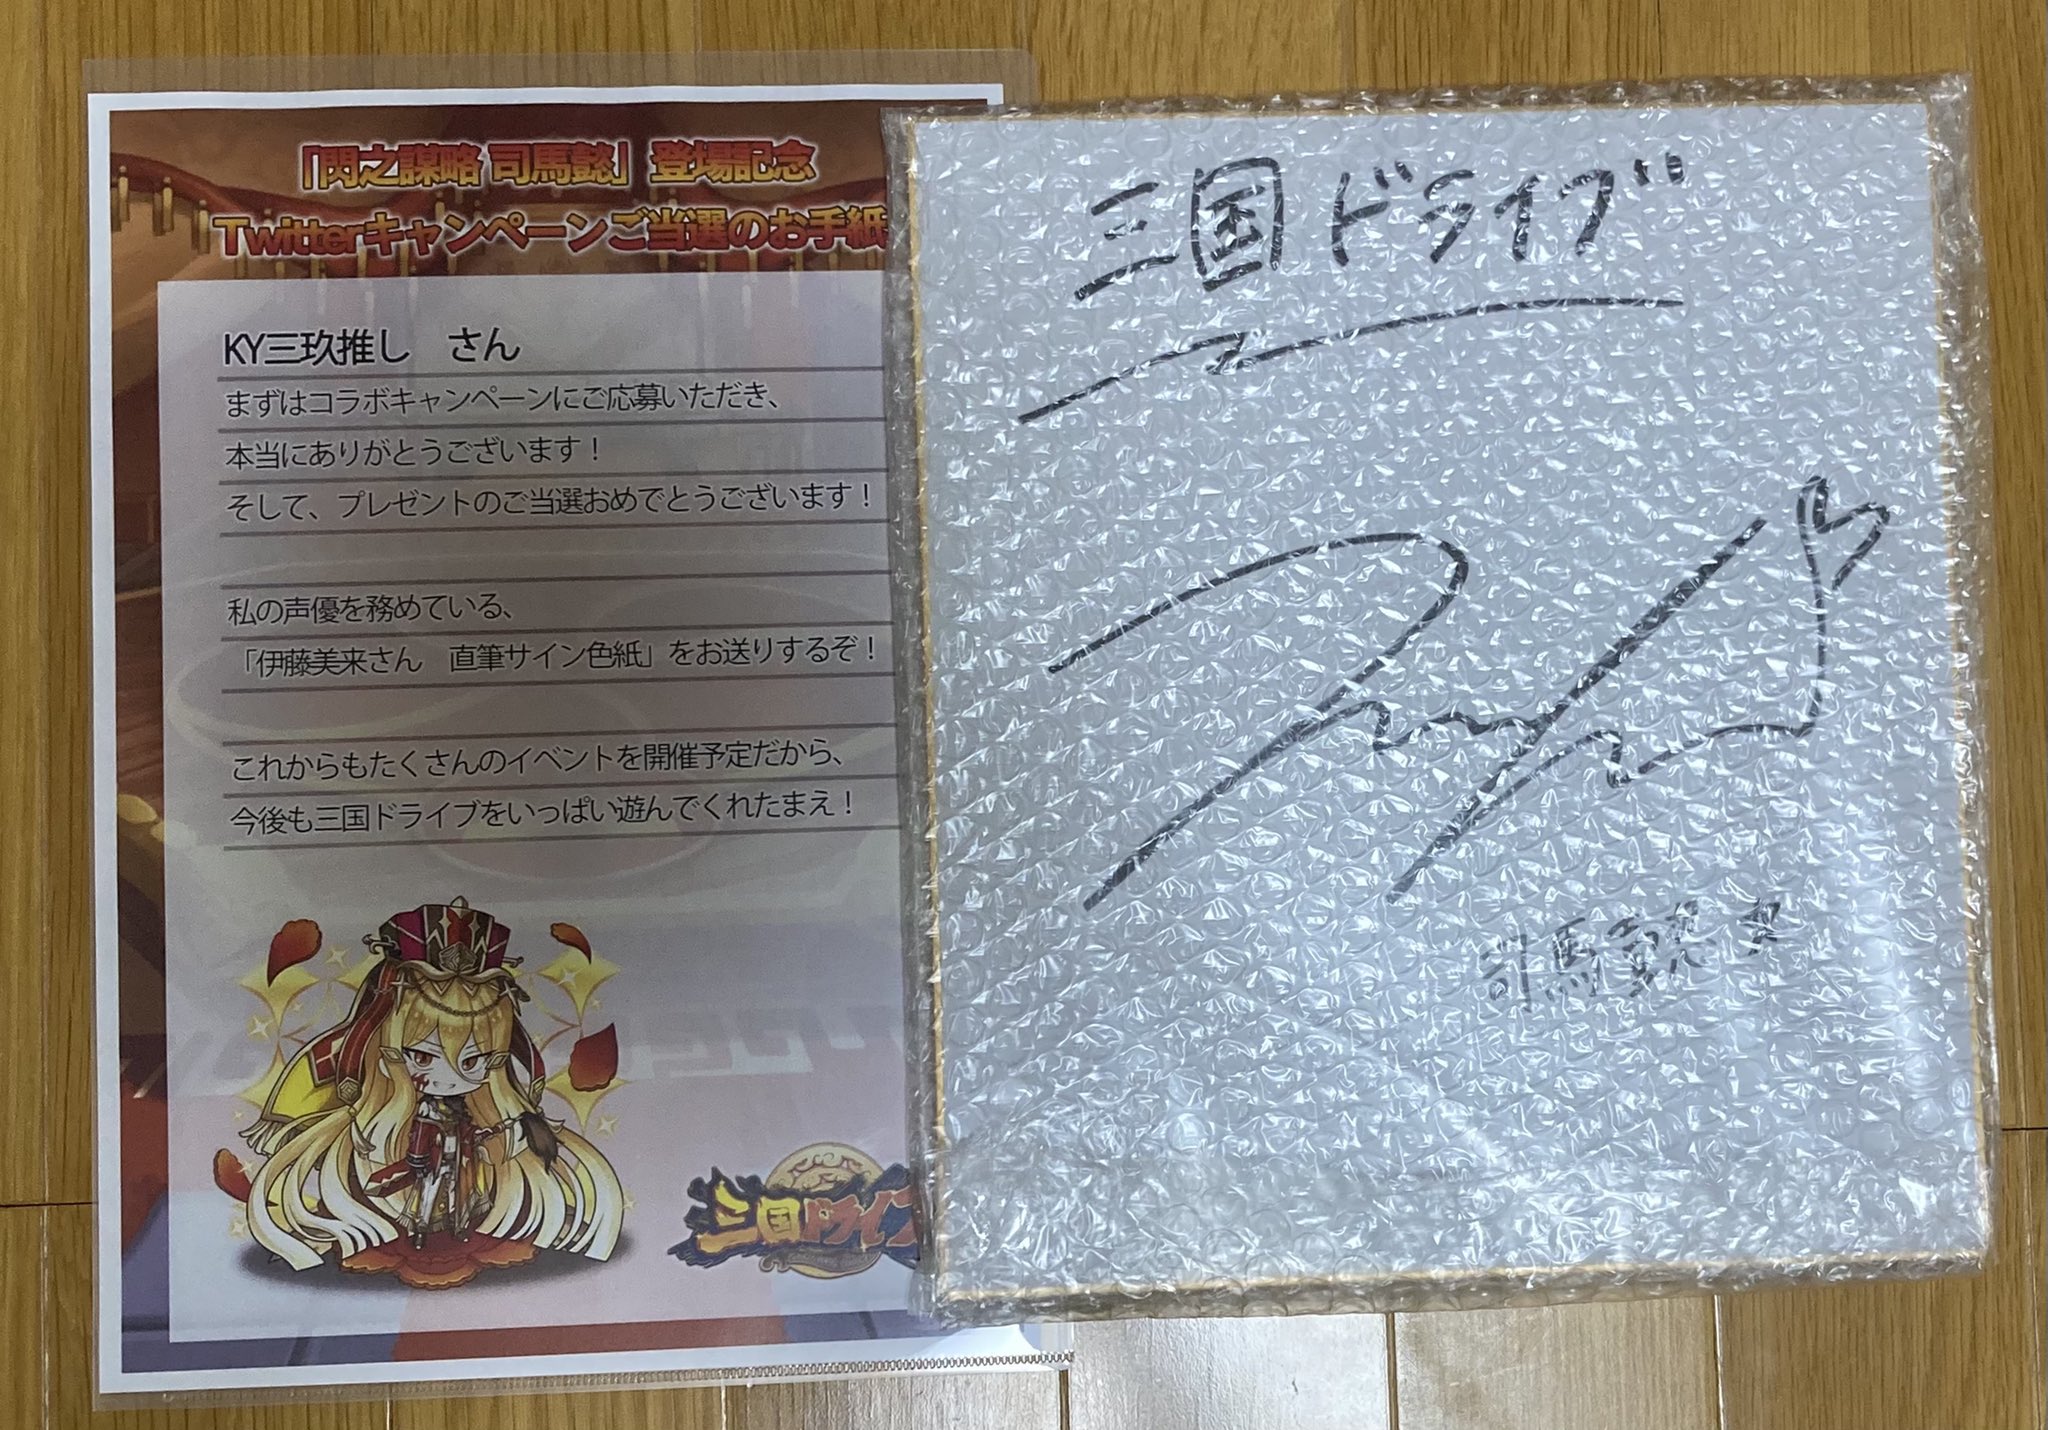 「閃之謀略 司馬懿」登場記念
Twitterキャンペーンご当選のお手紙
KY三玖推し　さん
まずはコラボキャンペーンにご応募いただき、
本当にありがとうございます！
そして、プレゼントのご当選おめでとうございます！
私の声優を務めている、
「伊藤美来さん　直筆サイン色紙」をお送りするぞ！
これからもたくさんのイベントを開催予定だから、
今後も三国ドライブをいっぱい遊んでくれたまえ！
三国ドライブ
三国ドライブ
司馬懿